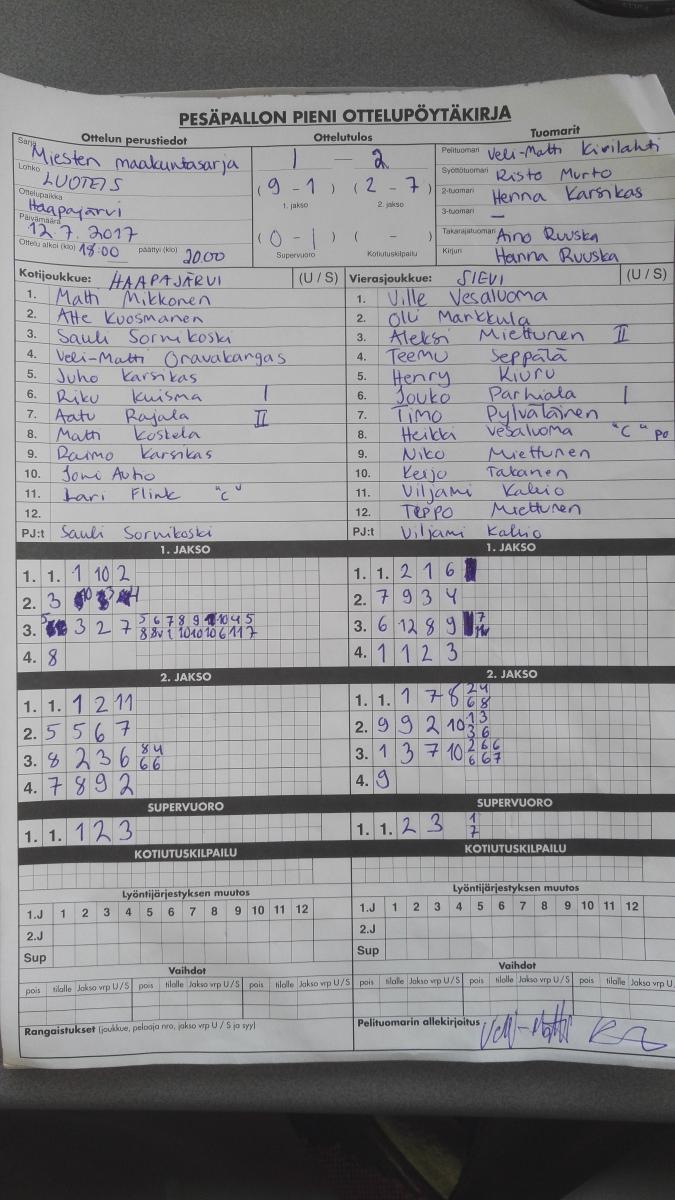 PESÄPALLON PIENI OTTELUPÖYTÄKIRJA
Ottelun perustiedot Ottelutulos Tuomarit
Sarja Miesten maakuntasarja 1 - 2 Pelituomari Veli-Matti Kivilahti
Lohko LUOTEIS (9-1) (2-7) Syöttötuomari Risto Murto
Ottelupaikka Haapajärvi 1. jakso 2. jakso 2-tuomari Henna Karsikas
Päivämäärä 12.7.2017 3-tuomari —
Ottelu alkoi (klo) 18:00 päättyi (klo) 20.00 (0-1) ( - ) Takarajatuomari Aino Ruuska
Supervuoro Kotiutuskilpailu Kirjuri Hanna Ruuska
Kotijoukkue: HAAPAJÄRVI (U / S) Vierasjoukkue: SIEVI (U / S)
1. Matti Mikkonen 1. Ville Vesaluoma
2. Atte Kuosmanen 2. Olli Markkula
3. Sauli Sornikoski 3. Aleksi Miettunen II
4. Veli-Matti Oravakangas 4. Teemu Seppälä
5. Juho Karsikas 5. Henry Kiuru
6. Riku Kuisma I 6. Jouko Parhiala I
7. Aatu Rajala II 7. Timo Pylväläinen
8. Matti Koskela 8. Heikki Vesaluoma "C" po
9. Raimo Karsikas 9. Niko Miettunen
10. Joni Autio 10. Keijo Takanen
11. Lari Flink "C" 11. Viljami Kallio
12. 12. Teppo Miettunen
PJ:t Sauli Sornikoski PJ:t Viljami Kallio
1. JAKSO 1. JAKSO
1. 1. 1 10 2 1. 1. 2 1 6
2. 3 2. 7 9 3 4
3. 3 2 7 3. 6 12 8 9 7
4. 8 4. 1 1 2 3
2. JAKSO 2. JAKSO
1. 1. 1 2 11 1. 1. 1 7 8 2 4 6 8
2. 5 5 6 7 2. 9 9 2 10 1 3 3 6
3. 8 2 3 6 8 4 6 6 3. 1 3 7 10 2 6 6 6 6 7
4. 7 8 9 2 4. 9
SUPERVUORO SUPERVUORO
1. 1. 1 2 3 1. 1. 2 3 1 7
KOTIUTUSKILPAILU KOTIUTUSKILPAILU
Lyöntijärjestyksen muutos Lyöntijärjestyksen muutos
1.J 1 2 3 4 5 6 7 8 9 10 11 12 1.J 1 2 3 4 5 6 7 8 9 10 11 12
2.J 2.J
Sup Sup
Vaihdot Vaihdot
pois tilalle Jakso vrp U / S pois tilalle Jakso vrp U / S pois tilalle Jakso vrp U / S pois tilalle Jakso vrp U / S pois tilalle Jakso vrp U / S pois tilalle Jakso vrp U
Rangaistukset (joukkue, pelaaja nro, jakso vrp U / S ja syy) Pelituomarin allekirjoitus Veli-Matti